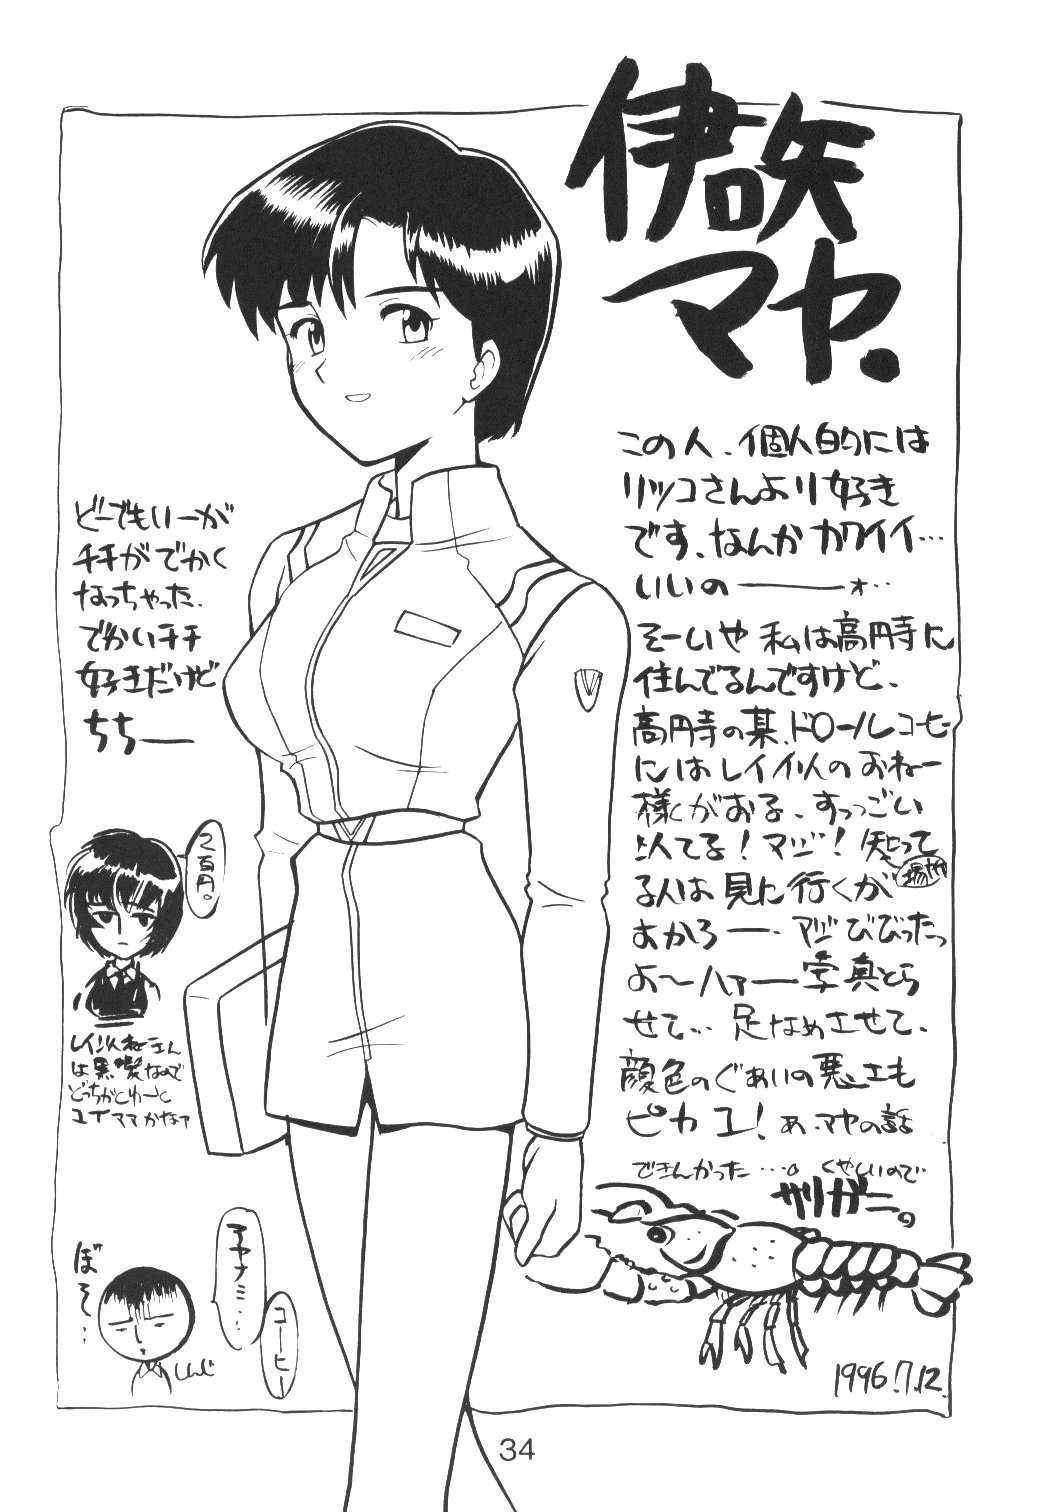 伊吹矢
マヤ.
この人、個人的には
リツコさんより好き
です、なんかカワイイ…
いいの――ォ…
そーいや 私は高円寺に
住んでるんですけど、
高円寺の某、ドロールコヒ
にはレイ似のおねー
様がおる、すっごい
似てる!マジ!知って
る人は見に行くが
場所
よかろー…マジびびったっ
よ〜ハァ――写真とら
せて…足なめさせて、
顔色のぐあいの悪さも
ピカ一!あ、マヤの話
できんかった…。くやしいので…
ザリガニ。
1996.7.12.
どーでもいーが
チチがでかく
なっちゃった、
でかいチチ
好きだけど
ちちー
2百円。
レイ似ねーさん
は黒髪なので
どっちかとゆーと
ユイママかなァ
ぼそ…
アヤナミ…
コーヒー
しんじ
34